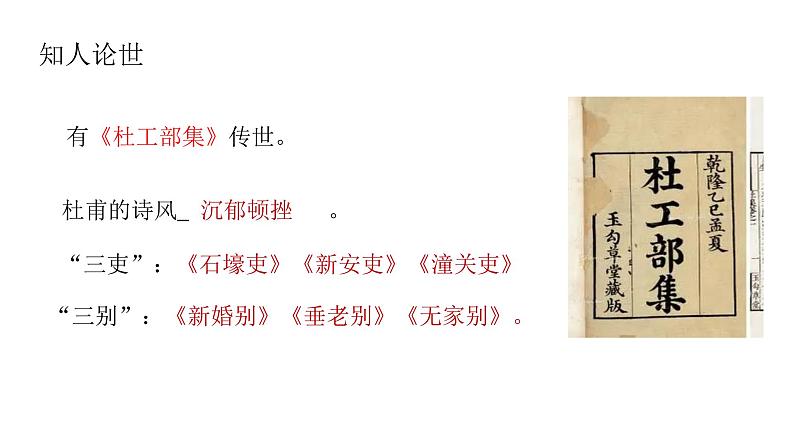 知人论世
有《杜工部集》传世。
杜甫的诗风_ 沉郁顿挫 。
“三吏”：《石壕吏》《新安吏》《潼关吏》
“三别”：《新婚别》《垂老别》《无家别》。
乾隆乙巳孟夏
杜工部集
玉勾草堂藏版